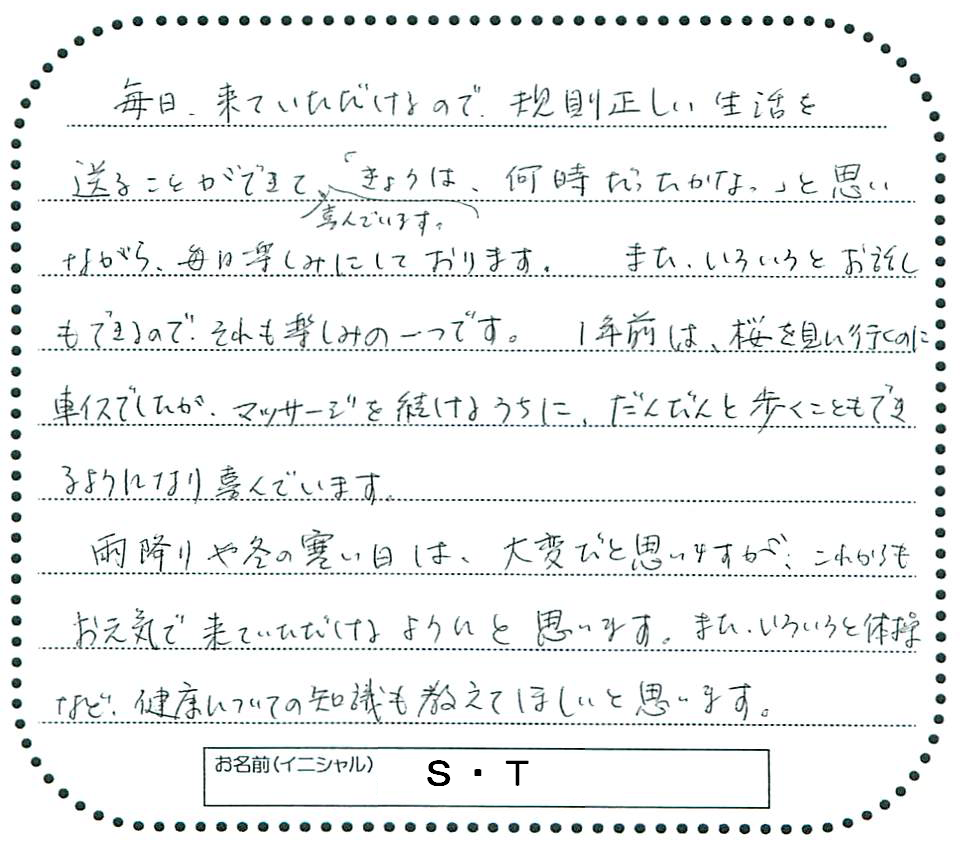 毎日、来ていただけるので、規則正しい生活を
送ることができて、「きょうは、何時だったかな。」と思い
喜んでいます。
ながら、毎日楽しみにしております。 また、いろいろとお話し
もできるので、それも楽しみの一つです。 1年前は、桜を見に行くのに
車イスでしたが、マッサージを続けるうちに、だんだんと歩くこともでき
るようになり喜んでいます。
雨降りや冬の寒い日は、大変だと思いますが、これからも
お元気で来ていただけるようにと思います。また、いろいろと体操
など、健康についての知識も教えてほしいと思います。
お名前(イニシャル) S・T